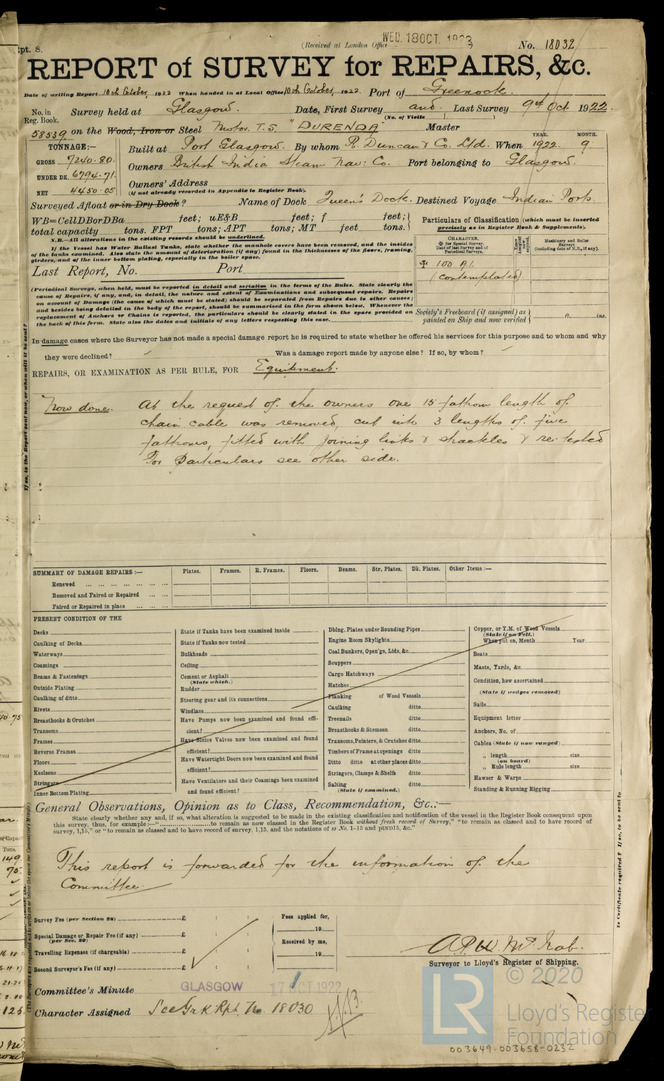 (Received at London Office WED. 18 OCT. 1922
Rpt. 8.
No. 18032
REPORT of SURVEY for REPAIRS, &c.
Date of writing Report 10th October, 1922 When handed in at Local Office 10th October, 1922. Port of Greenock.
No. in Reg. Book. Survey held at Glasgow. Date, First Survey and Last Survey 9th Oct 1922
(No. of Visits )
58539 on the Wood, Iron or Steel Motor. T.S. "DURENDA" Master
TONNAGE:— Built at Port Glasgow. By whom R. Duncan & Co. Ltd. When 1922. 9
YEAR. MONTH.
GROSS 7240.80. Owners British India Steam Nav: Co. Port belonging to Glasgow.
UNDER DK. 6794.71. Owners' Address
(if not already recorded in Appendix to Register Book).
NET 4450.05
Surveyed Afloat or in Dry Dock? Name of Dock Queen's Dock. Destined Voyage Indian Ports
WB=CellDBorDBa feet; uE&B feet; f feet;
total capacity tons. FPT tons; APT tons; MT feet tons.
Particulars of Classification (which must be inserted precisely as in Register Book & Supplements).
N.B.—All alterations in the existing records should be underlined.
If the Vessel has Water Ballast Tanks, state whether the manhole covers have been removed, and the insides
of the tanks examined. Also state the amount of deterioration (if any) found in the thicknesses of the floors, framing,
girders, and of the inner bottom plating, especially in the boiler space.
CHARACTER.
Machinery and Boiler Surveys
✠ 100 A1.
(contemplated)
Last Report, No. Port
(Periodical Surveys, when held, must be reported in detail and seriatim in the terms of the Rules. State clearly the
cause of Repairs, if any, and, in detail, the nature and extent of Examinations and subsequent repairs. Repairs
on account of Damage (the cause of which must be stated) should be separated from Repairs due to other causes;
and besides being detailed in the body of the report, should be summarised in the form shewn below. Whenever the
replacement of Anchors or Chains is reported, the particulars should be clearly stated in the space provided on
the back of this form. State also the dates and initials of any letters respecting this case.
Society's Freeboard (if assigned) as painted on Ship and now verified
In damage cases where the Surveyor has not made a special damage report he is required to state whether he offered his services for this purpose and to whom and why
they were declined? Was a damage report made by anyone else? If so, by whom?
REPAIRS, OR EXAMINATION AS PER RULE, FOR Equipment.
Now done. At the request of the owners one 15 fathom length of
chain cable was removed, cut into 3 lengths of five
fathoms, fitted with joining links & shackles & re-tested
For particulars see other side.
SUMMARY OF DAMAGE REPAIRS:— Plates. Frames. R. Frames. Floors. Beams. Str. Plates. Dk. Plates. Other Items:—
Renewed
Removed and Faired or Repaired
Faired or Repaired in place
PRESENT CONDITION OF THE
Decks
Caulking of Decks
Waterways
Coamings
Beams & Fastenings
Outside Plating
Caulking of ditto
Rivets
Breasthooks & Crutches
Transoms
Frames
Reverse Frames
Floors
Keelsons
Stringers
Inner Bottom Plating
State if Tanks have been examined inside
State if Tanks now tested
Bulkheads
Ceiling
Cement or Asphalt
(State which.)
Rudder
Steering gear and its connections
Windlass
Have Pumps now been examined and found efficient?
Have Sluice Valves now been examined and found efficient?
Have Watertight Doors now been examined and found efficient?
Have Ventilators and their Coamings been examined and found efficient?
Dblng. Plates under Sounding Pipes
Engine Room Skylights
Coal Bunkers, Open'gs, Lids, &c.
Scuppers
Cargo Hatchways
Hatches
Planking of Wood Vessels
Caulking ditto
Treenails ditto
Breasthooks & Stemson ditto
Transoms, Pointers, & Crutches ditto
Timbers of Frame at openings ditto
Ditto ditto at other places ditto
Stringers, Clamps & Shelfs ditto
Salting ditto
(State if examined.)
Copper, or Y.M. of Wood Vessels
(State if on Felt.)
When put on, Month Year
Boats
Masts, Yards, &c.
Condition, how ascertained
(State if wedges removed)
Sails
Equipment letter
Anchors, No. of
Cables (State if now ranged)
" length size
(on board)
" Rule length size
Hawser & Warps
Standing & Running Rigging
General Observations, Opinion as to Class, Recommendation, &c.:—
State clearly whether any and, if so, what alteration is suggested to be made in the existing classification and notification of the vessel in the Register Book consequent upon
this survey, thus, for example:—" to remain as now classed in the Register Book without fresh record of Survey," "to remain as classed and to have record of
survey, 1,15," or "to remain as classed and to have record of survey, 1,15, and the notations of ss No. 1–15 and pt&nd15, &c."
This report is forwarded for the information of the
Committee.
Survey Fee (per Section 28) £
Special Damage or Repair Fee (if any) £
(per Sec. 29)
Travelling Expenses (if chargeable) £
Second Surveyor's Fee (if any) £
Fees applied for,
19
Received by me,
19
Surveyor to Lloyd's Register of Shipping.
Committee's Minute GLASGOW 17 OCT 1922
Character Assigned See Grk Rpt. No. 18030
© 2020
LR Lloyd's Register
Foundation
003649-003658-0232